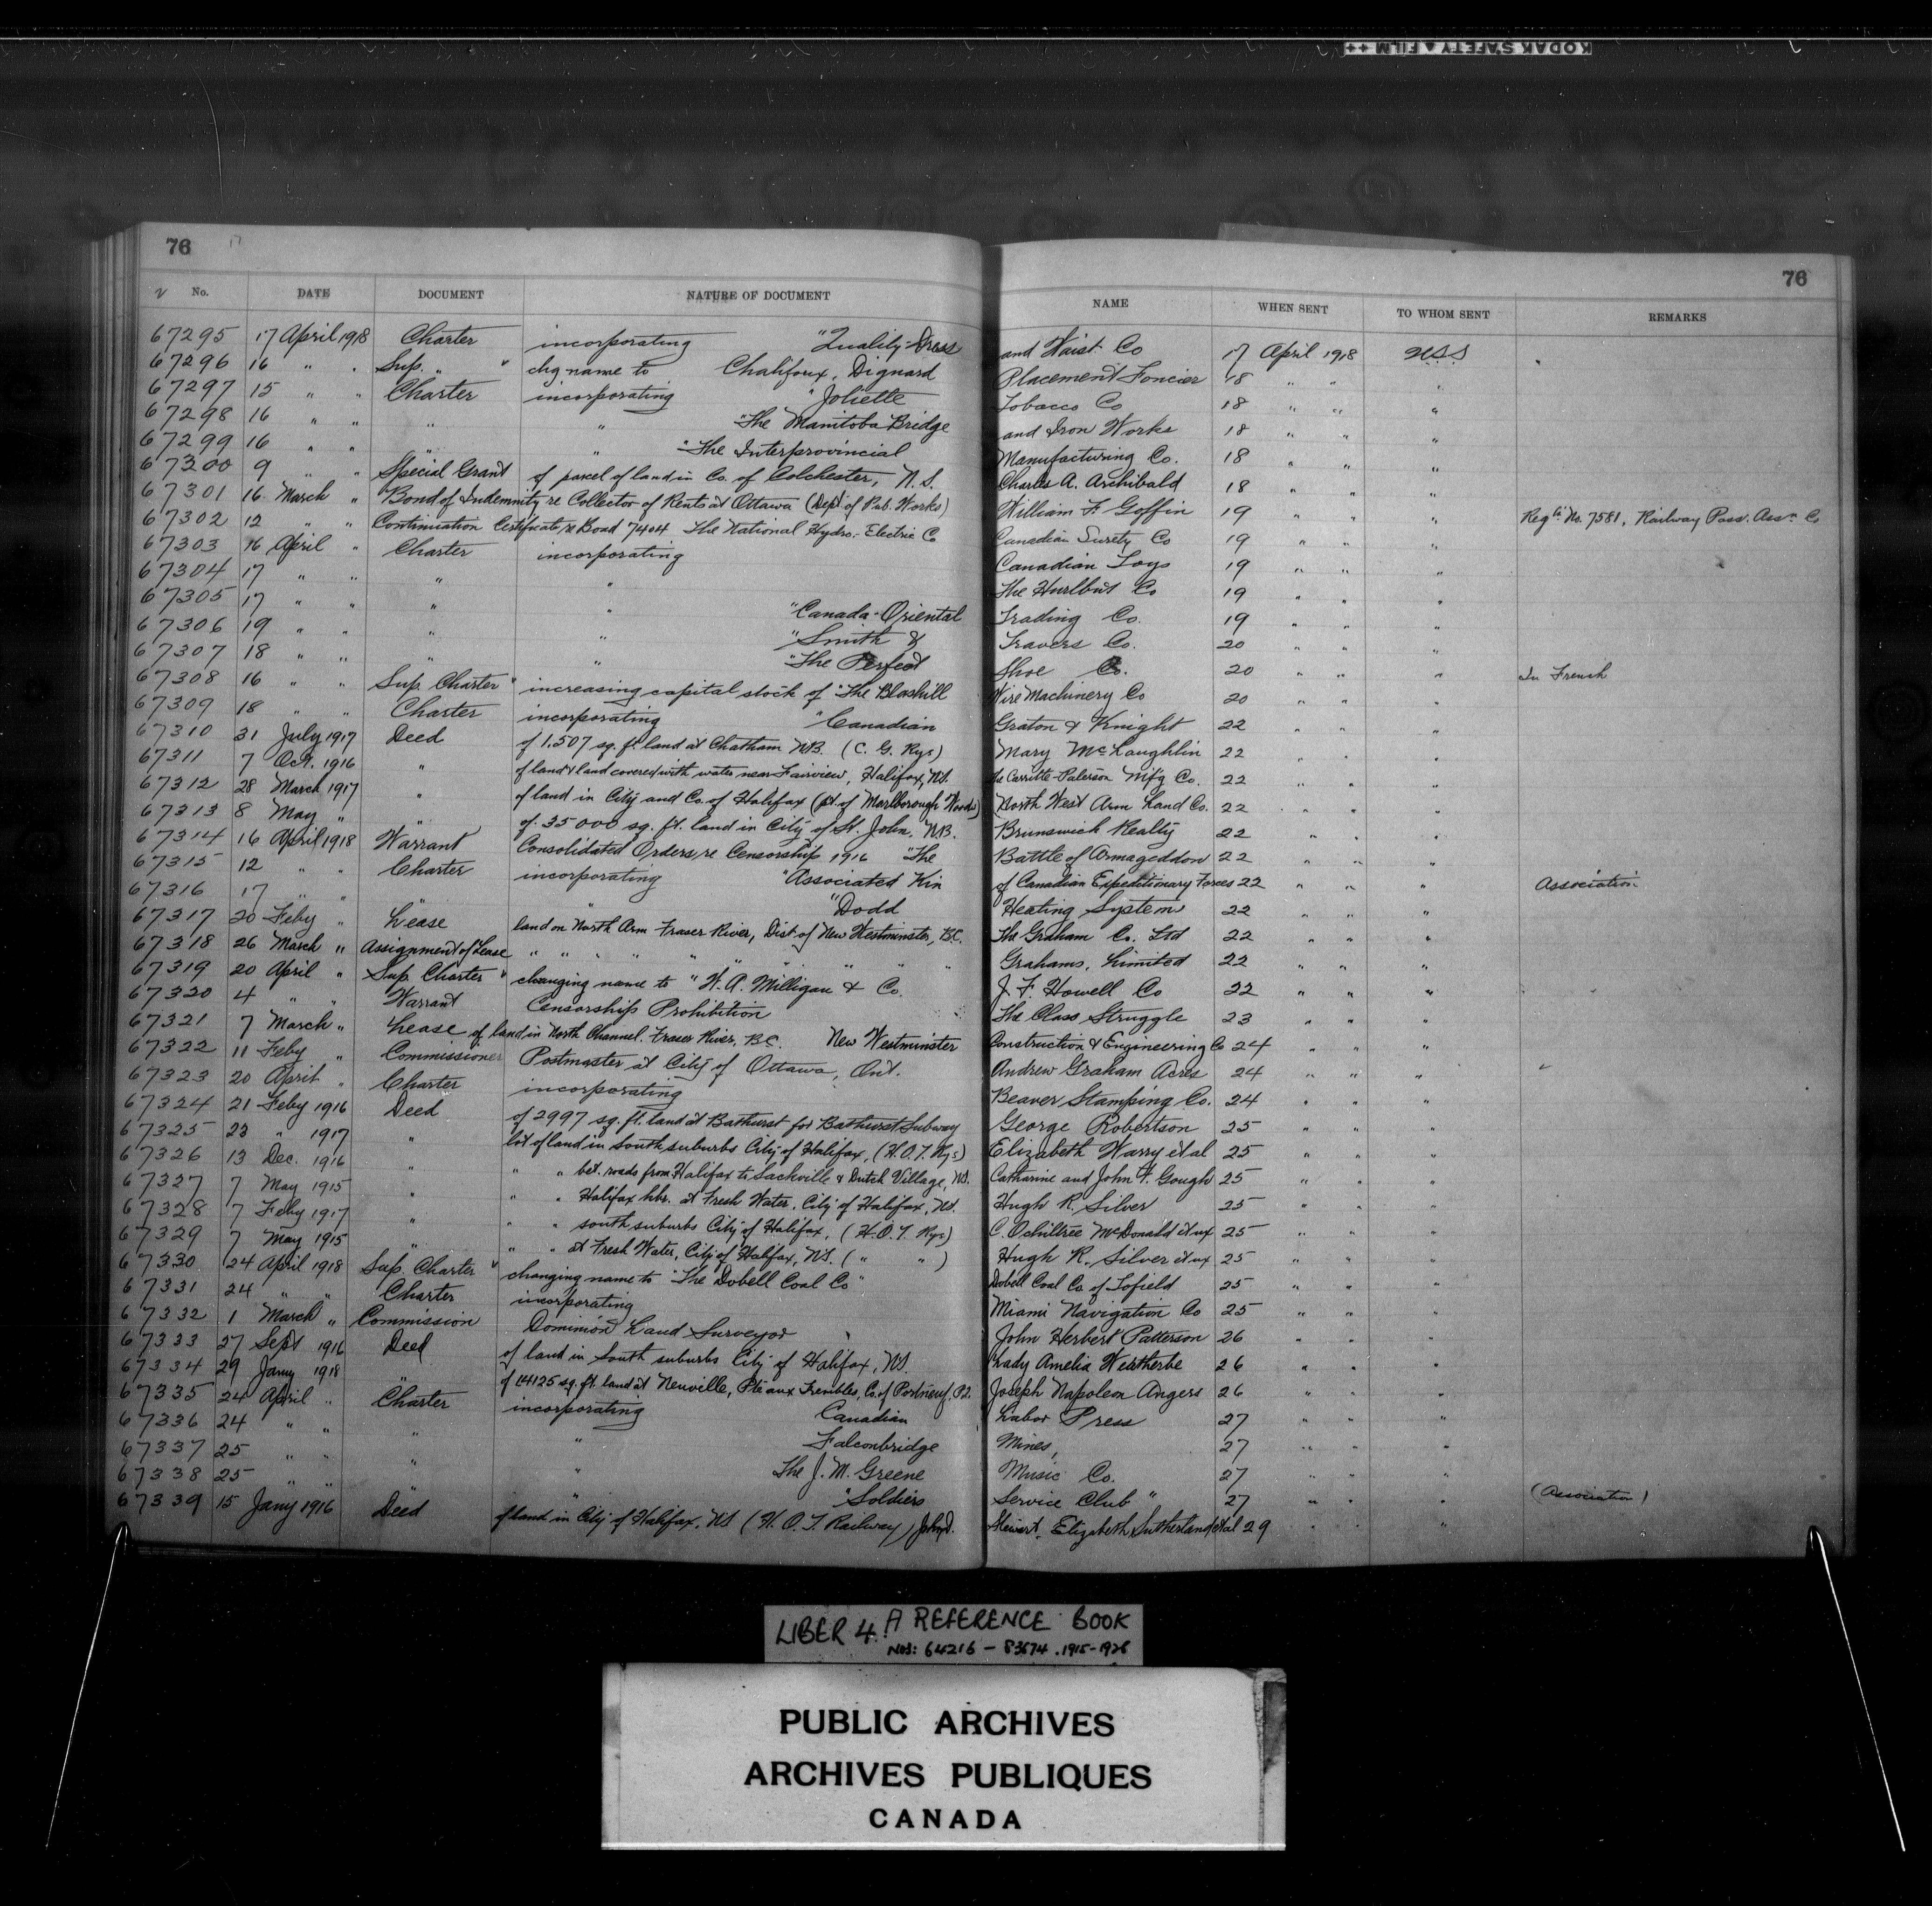 KODAK SAFETY ▲ FILM ++
76 76
No. DATE DOCUMENT NATURE OF DOCUMENT NAME WHEN SENT TO WHOM SENT REMARKS
67295 17 April 1918 Charter incorporating "Quality-Dress and Waist Co 17 April 1918 U.S.S
67296 16 " " Sup. " " chg name to Chalifoux, Dignard Placement Foncier 18 " " "
67297 15 " " Charter incorporating "Joliette Tobacco Co 18 " " "
67298 16 " " " " "The Manitoba Bridge and Iron Works 18 " " "
67299 16 " " " " "The Interprovincial Manufacturing Co. 18 " " "
67300 9 " " Special Grant of parcel of land in Co. of Colchester, N.S. Charles A. Archibald 18 " " "
67301 16 March " Bond of Indemnity re Collector of Rents at Ottawa (Dept of Pub. Works) William F. Goffin 19 " " " Regtn No. 7581, Railway Pass. Assn Co
67302 12 " " Continuation Certificate re Bond 7404 The National Hydro-Electric Co Canadian Surety Co 19 " " "
67303 16 April " Charter incorporating Canadian Toys 19 " " "
67304 17 " " " " The Hurlbut Co 19 " " "
67305 17 " " " " "Canada-Oriental Trading Co. 19 " " "
67306 19 " " " " "Smith & Travers Co. 20 " " "
67307 18 " " " " "The Perfect Shoe Co. 20 " " " In French
67308 16 " " Sup. Charter " increasing capital stock of "The Blashill Wire Machinery Co 20 " " "
67309 18 " " Charter incorporating "Canadian Graton & Knight 22 " " "
67310 31 July 1917 Deed of 1,507 sq. ft. land at Chatham N.B. (C. G. Rys) Mary McLaughlin 22 " " "
67311 7 Oct. 1916 " of land & land covered with water near Fairview, Halifax, N.S. The Carritte-Paterson Mfg Co. 22 " " "
67312 28 March 1917 " of land in City and Co. of Halifax (pt. of Marlborough Woods) North West Arm Land Co. 22 " " "
67313 8 May " " of 35000 sq. ft. land in City of St. John, N.B. Brunswick Realty 22 " " "
67314 16 April 1918 Warrant Consolidated Orders re Censorship 1916 "The Battle of Armageddon 22 " " "
67315 12 " " Charter incorporating "Associated Kin of Canadian Expeditionary Forces 22 " " " Association
67316 17 " " " " "Dodd Heating System 22 " " "
67317 20 Feby " Lease land on North Arm Fraser River, Dist. of New Westminster, B.C. The Graham Co. Ltd 22 " " "
67318 26 March " Assignment of Lease " " " " " " " " Grahams, Limited 22 " " "
67319 20 April " Sup Charter " changing name to "W. A. Milligan & Co. J. F. Howell Co 22 " " "
67320 4 " " Warrant Censorship Prohibition The Class Struggle 23 " " "
67321 7 March " Lease of land in North Channel. Fraser River, B.C. New Westminster Construction & Engineering Co 24 " " "
67322 11 Feby " Commissioner Postmaster at City of Ottawa, Ont. Andrew Graham Acres 24 " " "
67323 20 April " Charter incorporating Beaver Stamping Co. 24 " " "
67324 21 Feby 1916 Deed of 2997 sq. ft. land at Bathurst for Bathurst Subway George Robertson 25 " " "
67325 23 " 1917 " lot of land in South suburbs City of Halifax, (H.O.T. Rys) Elizabeth Warry et al 25 " " "
67326 13 Dec. 1916 " " " bet. roads from Halifax to Sackville & Dutch Village, N.S. Catharine and John F. Gough 25 " " "
67327 7 May 1915 " " " Halifax hbr. at Fresh Water, City of Halifax, N.S. Hugh R. Silver 25 " " "
67328 7 Feby 1917 " " " south suburbs City of Halifax, (H.O.T. Rys) C. Ochiltree McDonald et ux 25 " " "
67329 7 May 1915 " " " at Fresh Water, City of Halifax, N.S. ( " " ) Hugh R. Silver et ux 25 " " "
67330 24 April 1918 Sup. Charter " changing name to "The Dobell Coal Co" Dobell Coal Co. of Tofield 25 " " "
67331 24 " " Charter incorporating Miami Navigation Co 25 " " "
67332 1 March " Commission Dominion Land Surveyor John Herbert Patterson 26 " " "
67333 27 Sept 1916 Deed of land in South suburbs City of Halifax, N.S. Lady Amelia Weatherbe 26 " " "
67334 29 Jany 1918 " of 14125 sq. ft. land at Neuville, Pte aux Trembles, Co. of Portneuf, P.Q. Joseph Napoleon Angers 26 " " "
67335 24 April " Charter incorporating Canadian Labor Press 27 " " "
67336 24 " " " " Falconbridge Mines, 27 " " "
67337 25 " " " " The J. M. Greene Music Co. 27 " " "
67338 25 " " " " "Soldiers Service Club" 27 " " " (Association)
67339 15 Jany 1916 Deed of land in City of Halifax, N.S. (H.O.T. Railway) John D. Stewart, Elizabeth Sutherland et al 29 " " "
LIBER 4. A REFERENCE BOOK
NOS: 64216 – 83674. 1915-1928
PUBLIC ARCHIVES
ARCHIVES PUBLIQUES
CANADA